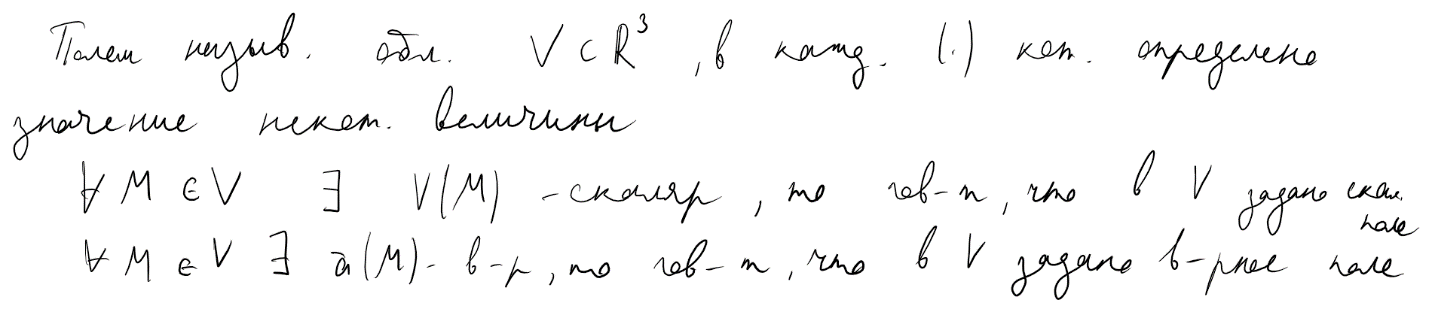 Полем назыв. обл. V ⊂ R³, в кажд. (·) кот. определено
значение некот. величины
∀ M ∈ V ∃ V(M) - скаляр, то гов-т, что в V задано скал. поле
∀ M ∈ V ∃ ā(M) - в-р, то гов-т, что в V задано в-рное поле